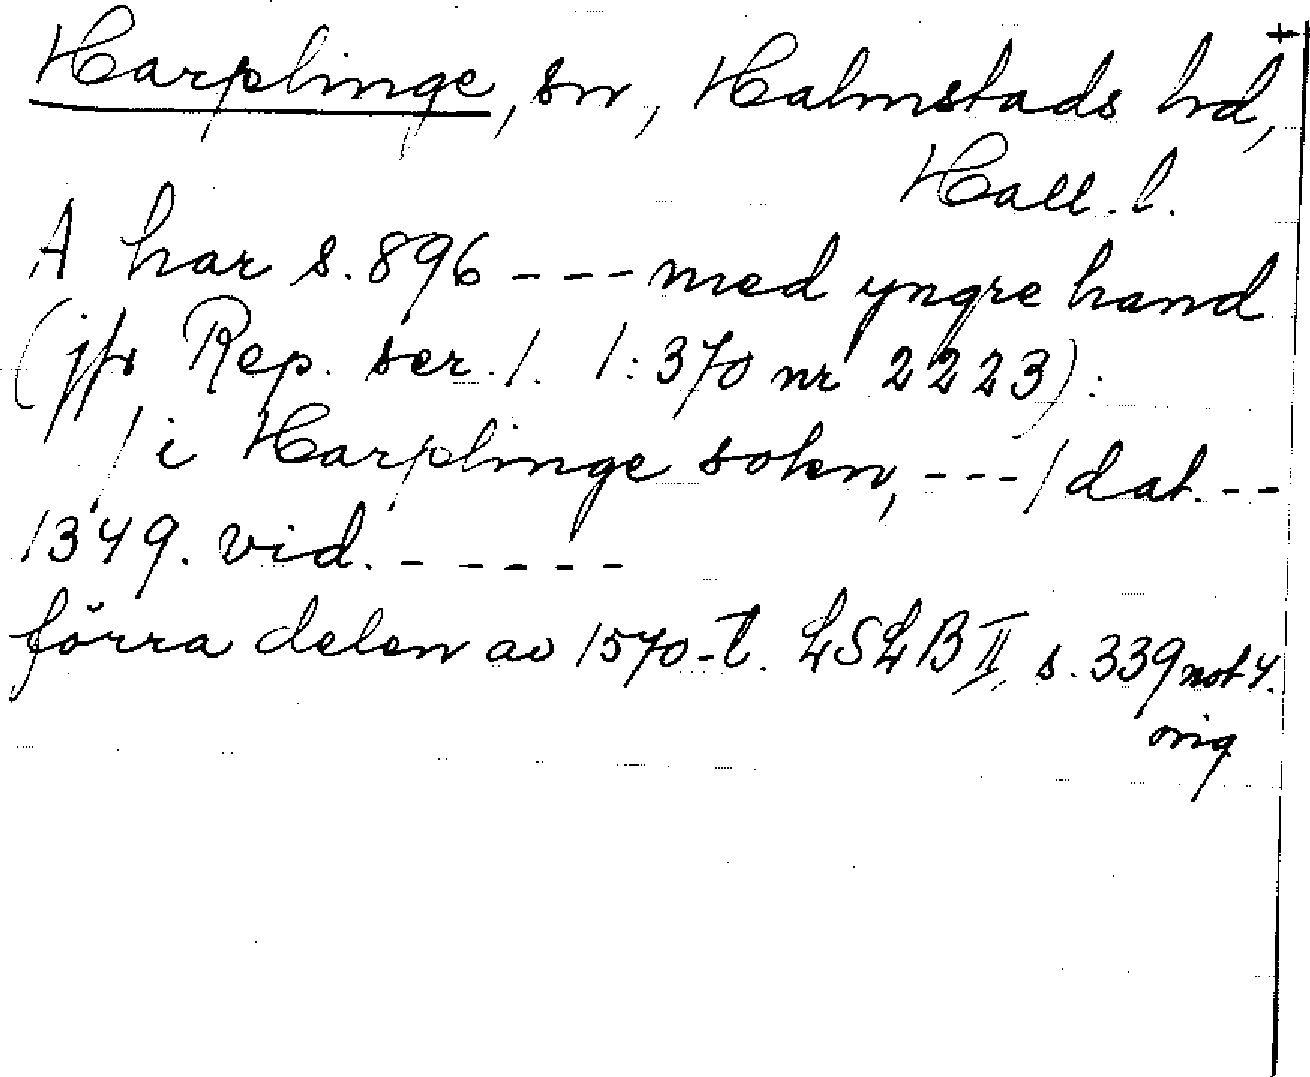 Harplinge, sn, Halmstads hd,
Hall. l.
A har s. 896 --- med yngre hand
(jfr Rep. ser. 1. 1:370 nr 2223):
/ i Harplinge sokn, ---/ dat. --
1349. vid. ------
förra delen av 1570-t. LSLB II, s. 339 not 4.
orig